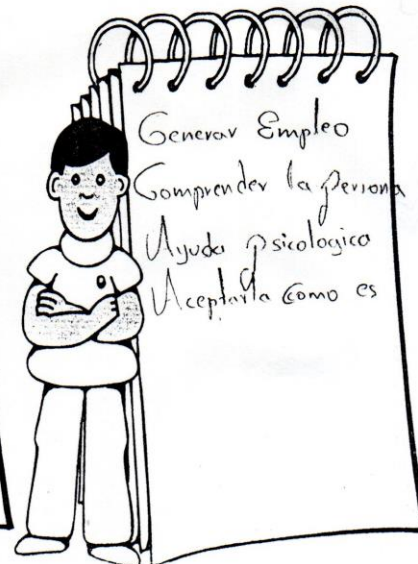 Generar Empleo
Comprender la persona
Ayuda psicologica
Aceptarla como es